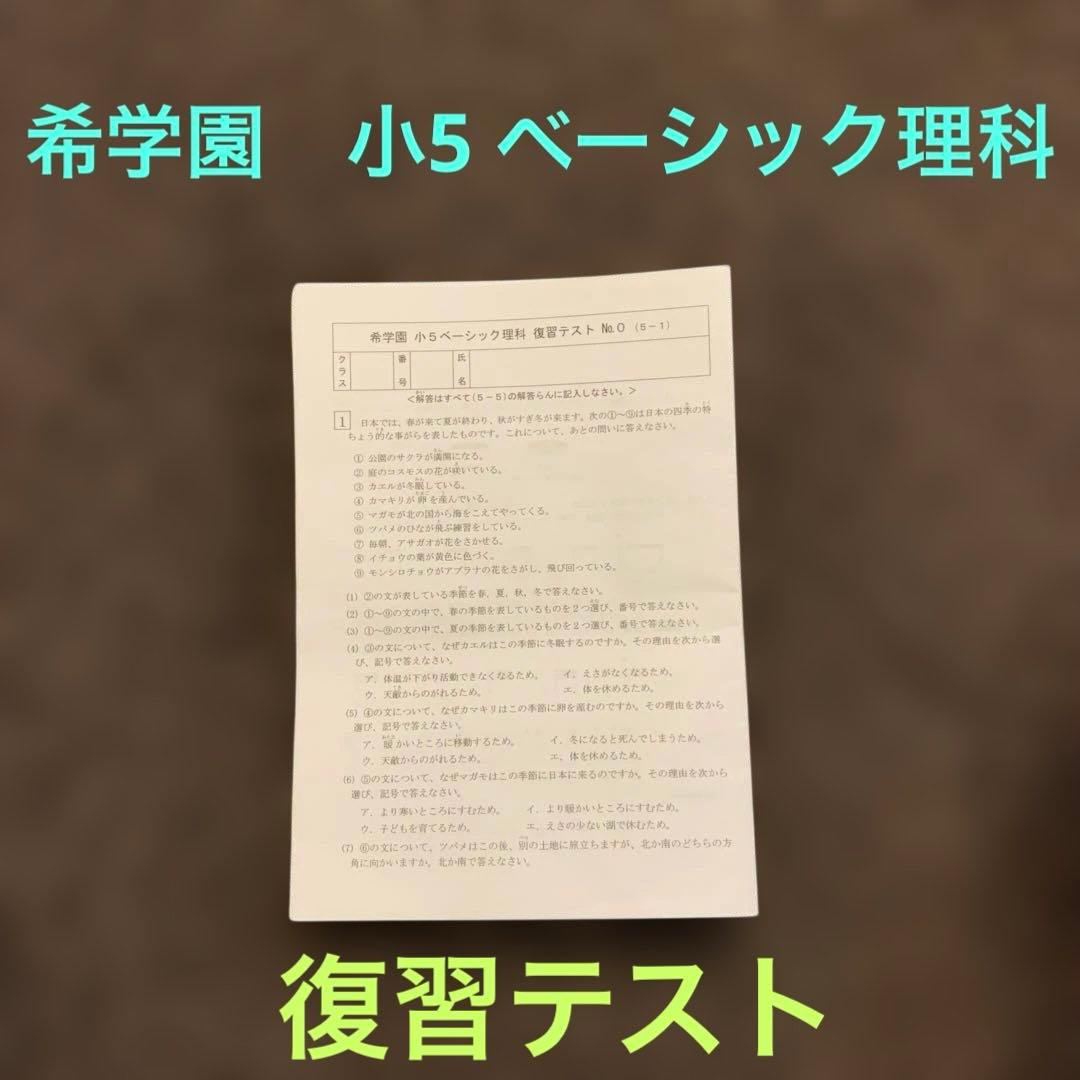 希学園　小5 ベーシック理科
希学園 小5ベーシック理科 復習テスト No.0 （5－1）
クラス 番号 氏名
＜解答はすべて（5－5）の解答らんに記入しなさい。＞
1 日本では、春が来て夏が終わり、秋がすぎ冬が来ます。次の①～⑨は日本の四季の特
ちょう的な事がらを表したものです。これについて、あとの問いに答えなさい。
① 公園のサクラが満開になる。
② 庭のコスモスの花が咲いている。
③ カエルが冬眠している。
④ カマキリが卵を産んでいる。
⑤ マガモが北の国から海をこえてやってくる。
⑥ ツバメのひなが飛ぶ練習をしている。
⑦ 毎朝、アサガオが花をさかせる。
⑧ イチョウの葉が黄色に色づく。
⑨ モンシロチョウがアブラナの花をさがし、飛び回っている。
(1) ②の文が表している季節を春、夏、秋、冬で答えなさい。
(2) ①～⑨の文の中で、春の季節を表しているものを2つ選び、番号で答えなさい。
(3) ①～⑨の文の中で、夏の季節を表しているものを2つ選び、番号で答えなさい。
(4) ③の文について、なぜカエルはこの季節に冬眠するのですか。その理由を次から選
び、記号で答えなさい。
ア．体温が下がり活動できなくなるため。 イ．えさがなくなるため。
ウ．天敵からのがれるため。 エ．体を休めるため。
(5) ④の文について、なぜカマキリはこの季節に卵を産むのですか。その理由を次から
選び、記号で答えなさい。
ア．暖かいところに移動するため。 イ．冬になると死んでしまうため。
ウ．天敵からのがれるため。 エ．体を休めるため。
(6) ⑤の文について、なぜマガモはこの季節に日本に来るのですか。その理由を次から
選び、記号で答えなさい。
ア．より寒いところにすむため。 イ．より暖かいところにすむため。
ウ．子どもを育てるため。 エ．えさの少ない湖で休むため。
(7) ⑥の文について、ツバメはこの後、別の土地に旅立ちますが、北か南のどちらの方
角に向かいますか。北か南で答えなさい。
復習テスト